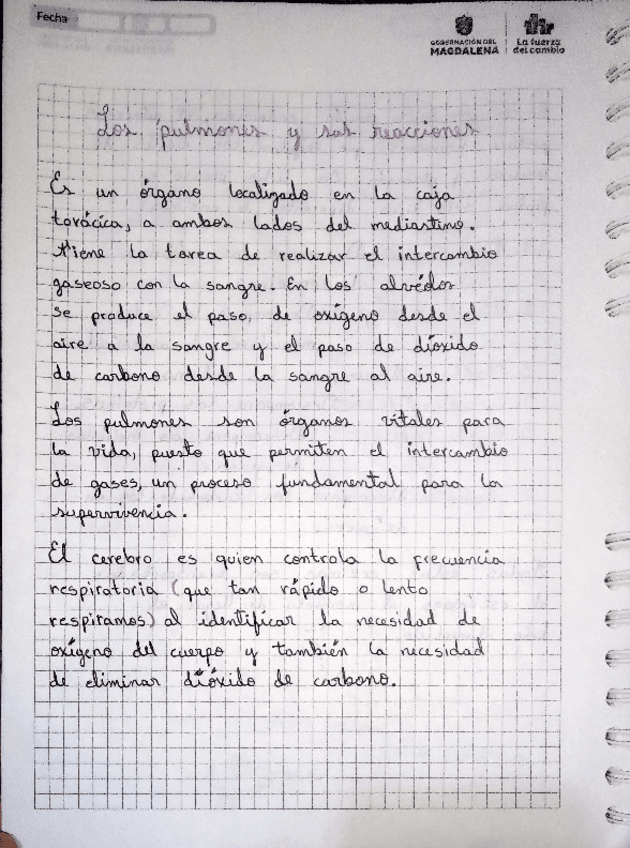 Fecha
GOBERNACIÓN DEL
MAGDALENA
La fuerza
del cambio
Los pulmones y sus reacciones
Es un órgano localizado en la caja
torácica, a ambos lados del mediastino.
Tiene la tarea de realizar el intercambio
gaseoso con la sangre. En los alvéolos
se produce el paso, de oxígeno desde el
aire a la sangre y el paso de dióxido
de carbono desde la sangre al aire.
Los pulmones son órganos vitales para
la vida, puesto que permiten el intercambio
de gases, un proceso fundamental para la
supervivencia.
El cerebro es quien controla la frecuencia
respiratoria (que tan rápido o lento
respiramos) al identificar la necesidad de
oxígeno del cuerpo y también la necesidad
de eliminar dióxido de carbono.